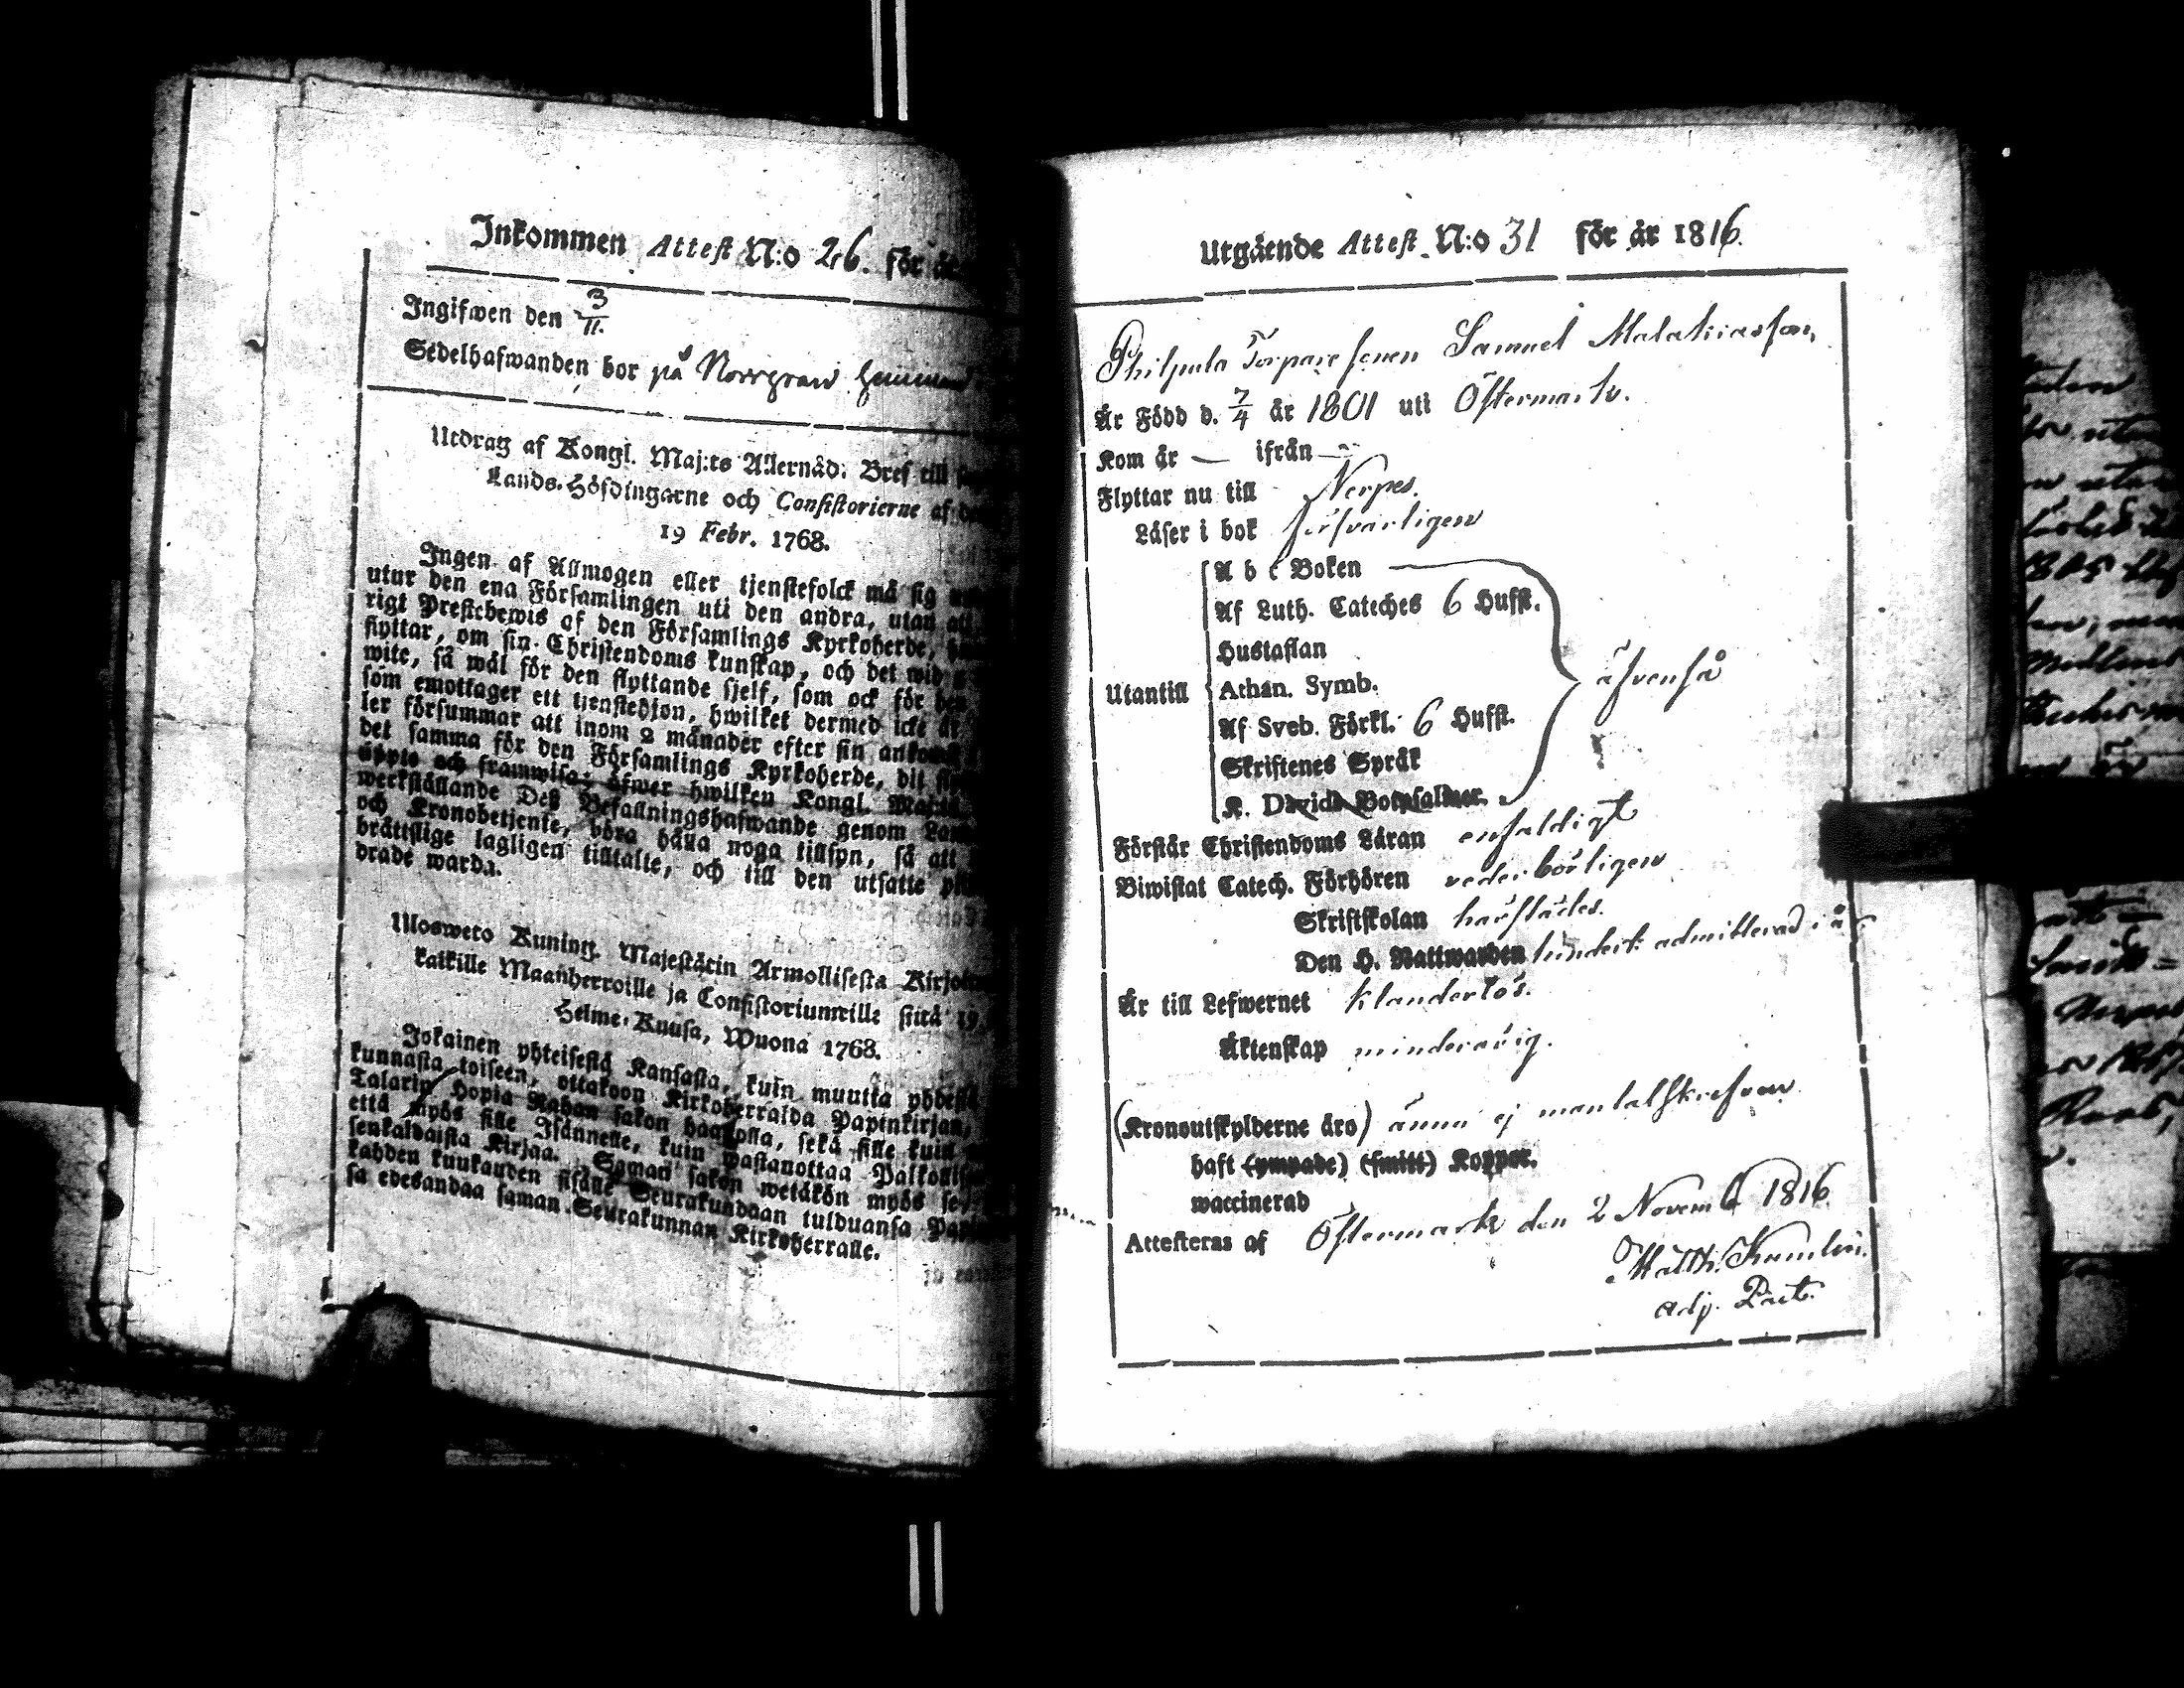 Inkommen Attest N:o 26. för år
Ingifwen den 3/11.
Sedelhafwanden bor på Norrgrand hemman
Utdrag af Kongl. Maj:ts Allernåd. Bref till
Lands-Höfdingarne och Consistorierne af
19 Febr. 1768.
Ingen af Allmogen eller tjenstefolck må sig
utur den ena Församlingen uti den andra, utan
rigt Prestebewis af den Församlings Kyrkoherde,
flyttar, om sin Christendoms kunskap, och det wid
wite, så wäl för den flyttande sjelf, som ock för den
som emottager ett tjenstehjon, hwilket dermed icke är
ler försummar att inom 2 månader efter sin ankomst
det samma för den Församlings Kyrkoherde, dit
uppte och framwisa; öfwer hwilken Kongl. Maj:ts
werkställande Deß Befallningshafwande genom
och Kronobetjente, böra hålla noga tillsyn, så att
brättslige lagligen tilltalte, och till den utsatte
drade warda.
Ulosweto Kuning. Majestätin Armollisesta Kirjoi
kaikille Maanherroille ja Consistoriumeille siitä 19.
Helme-Kuusa, Wuona 1768.
Jokainen yhteisestä Kansasta, kuin muutta yhdestä
kunnasta toiseen, ottakoon Kirkoherralda Papinkirjan,
Talarin Hopia Rahan sakon haastolla, sekä sille kuin
että myös sille Isännelle, kuin wastanottaa Palkollisen
senkaldaista Kirjaa. Saman sakon wetäkön myös se,
kahden kuukauden sisälle Seurakundaan tulduansa
sa edesandaa saman Seurakunnan Kirkoherralle.
Utgående Attest N:o 31 för år 1816.
Philpula Torpare sonen Samuel Malakiasson,
Är Född d. 7/4 år 1801 uti Östermark.
Kom år — ifrån —
Flyttar nu till Nerpes.
Läser i bok försvarligen
A b c Boken
Af Luth. Cateches 6 Hufst.
Hustaflan
Utantill Athan. Symb. äfvenså
Af Sveb. Förkl. 6 Hufst.
Skriftenes Språk
K. Davids Botpsalmer.
Förstår Christendoms Läran enfaldigt
Biwistat Catech. Förhören vederbörligen
Skriftskolan härstädes.
Den H. Nattwarden admitterad i år
Är till Lefwernet klanderlös.
Äktenskap minderårig.
(Kronoutskylderne äro) ännu ej mantalskrefven
haft (ympade) (smitt) Koppor.
waccinerad
Attesteras af Östermark den 2 Novemb 1816
Matth. Kumlin.
adj. Past.